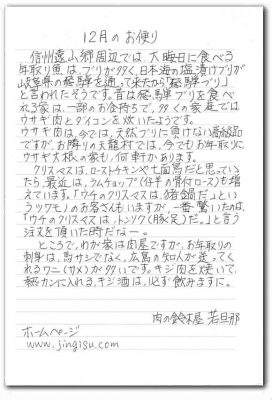 12月のお便り
信州遠山郷周辺では、大晦日に食べる
年取り魚は、ブリが多く、日本海の塩漬けブリが
岐阜県の飛騨を通って来たから「飛騨ブリ」
と言われたそうです。昔は飛騨ブリを食べ
れる家は、一部のお金持ちで、多くの家庭では
ウサギ肉とダイコンを炊いたようです。
ウサギ肉は、今では、天然ブリに負けない高級品
ですが、お隣りの天龍村では、今でもお年取りに
ウサギ大根の家も、何軒かあります。
クリスマスは、ローストチキンや七面鳥だと思ってい
たら、最近は、ラムチョップ(仔羊の骨付ロース)も増
えています。「ウチのクリスマスは、猪鍋だ。」とい
うツワモノのお客さんもいますが、一番驚いたのは、
「ウチのクリスマスは、トンソク(豚足)だ。」と言う
注文を頂いた時だな〜。
ところで、わが家は肉屋ですが、お年取りの
刺身は、馬サシでなく、広島の知人が送ってく
れるワニ(サメ)が多いです。キジ肉を焼いて、
熱カンに入れる、キジ酒は、必ず飲みますに。
肉の鈴木屋 若旦那
ホームページ
www.jingisu.com